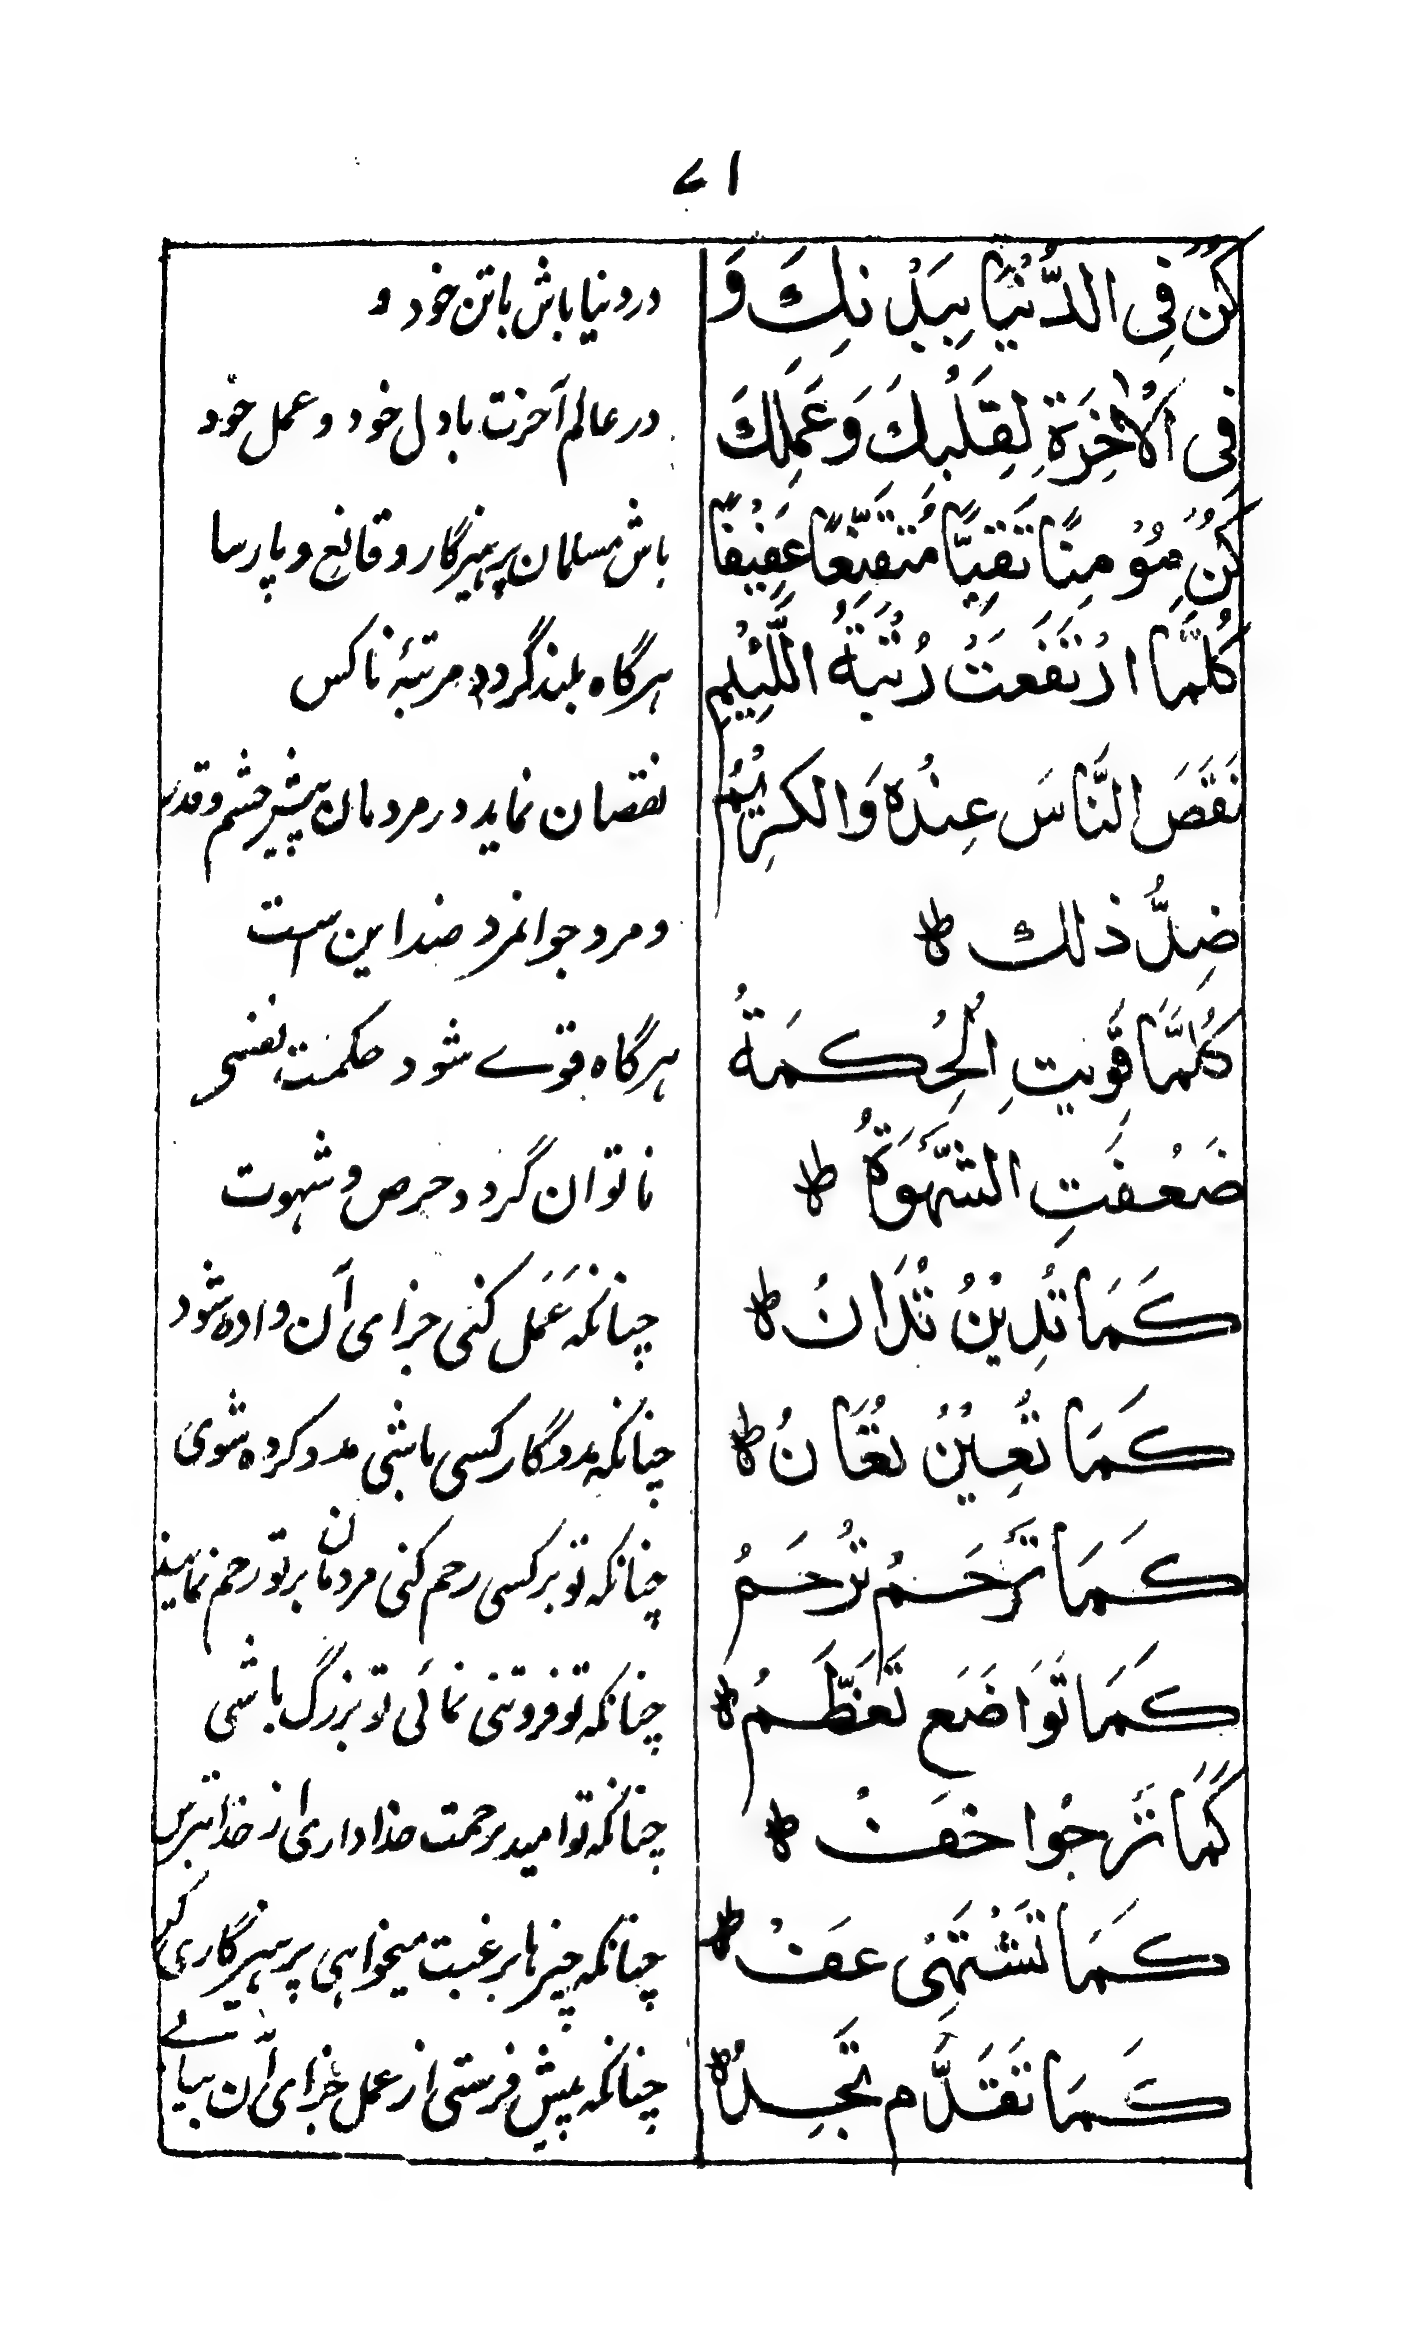 ۷۱
كُنْ فِي الدُّنْيَا بِبَدْنِكَ وَ
در دنیا باش باتن خود و
فِي الْاٰخِرَةِ لِقَلْبِكَ وَعَمِلِكَ
در عالم آخرت بادل خود و عمل خود
كُنْ مُؤْمِنًا تَقِيًّا مُتَقَنِّعًا عَفِيْفًا
باش مسلمان پرهیزگار و قانع و پارسا
كُلَّمَا ارْتَفَعَتْ رُتْبَةُ اللَّئِيْمِ
هرگاه بلند گردد مرتبهٔ ناکس
نَقَصَ النَّاسَ عِنْدَهٗ وَالكَرِيْمُ
نقصان نماید در مردمان پیش چشم و قدر
ضِلُّ ذلك ط
و مرد جوانمرد ضد این است
كُلَّمَا قَوِيَتِ الْحِكمَةُ
هرگاه قوے شود حکمت نفسی
ضَعُفَتِ الشَّهْوَةُ ط
ناتوان گردد حرص و شهوت
كَمَا تُدِيْنُ تُدَانُ ط
چنانکه عَمَل کنی جزای آن داده شود
كَمَا تُعِيْنُ تُعَانُ ط
چنانکه مددگار کسی باشی مدد کرده شوی
كَمَا تَرْحَمُ تُرْحَمُ
چنانکه تو بر کسی رحم کنی مردمان بر تو رحم نمایند
كَمَا تَوَاضَع تَعَظَّمُ ط
چنانکه تو فروتنی نمائی تو بزرگ باشی
كَمَا تَرجُوا خَفْ ط
چنانکه تو امید رحمت خدا داری از خدا بترس
كَمَا تَشْتَهِي عَفْ ط
چنانکه چیزها برغبت میخواهی پرهیزگاری کن
كَمَا تَقَدَّم تَجِدْ ط
چنانکه پیش فرستی از عمل جزای آن بیابے